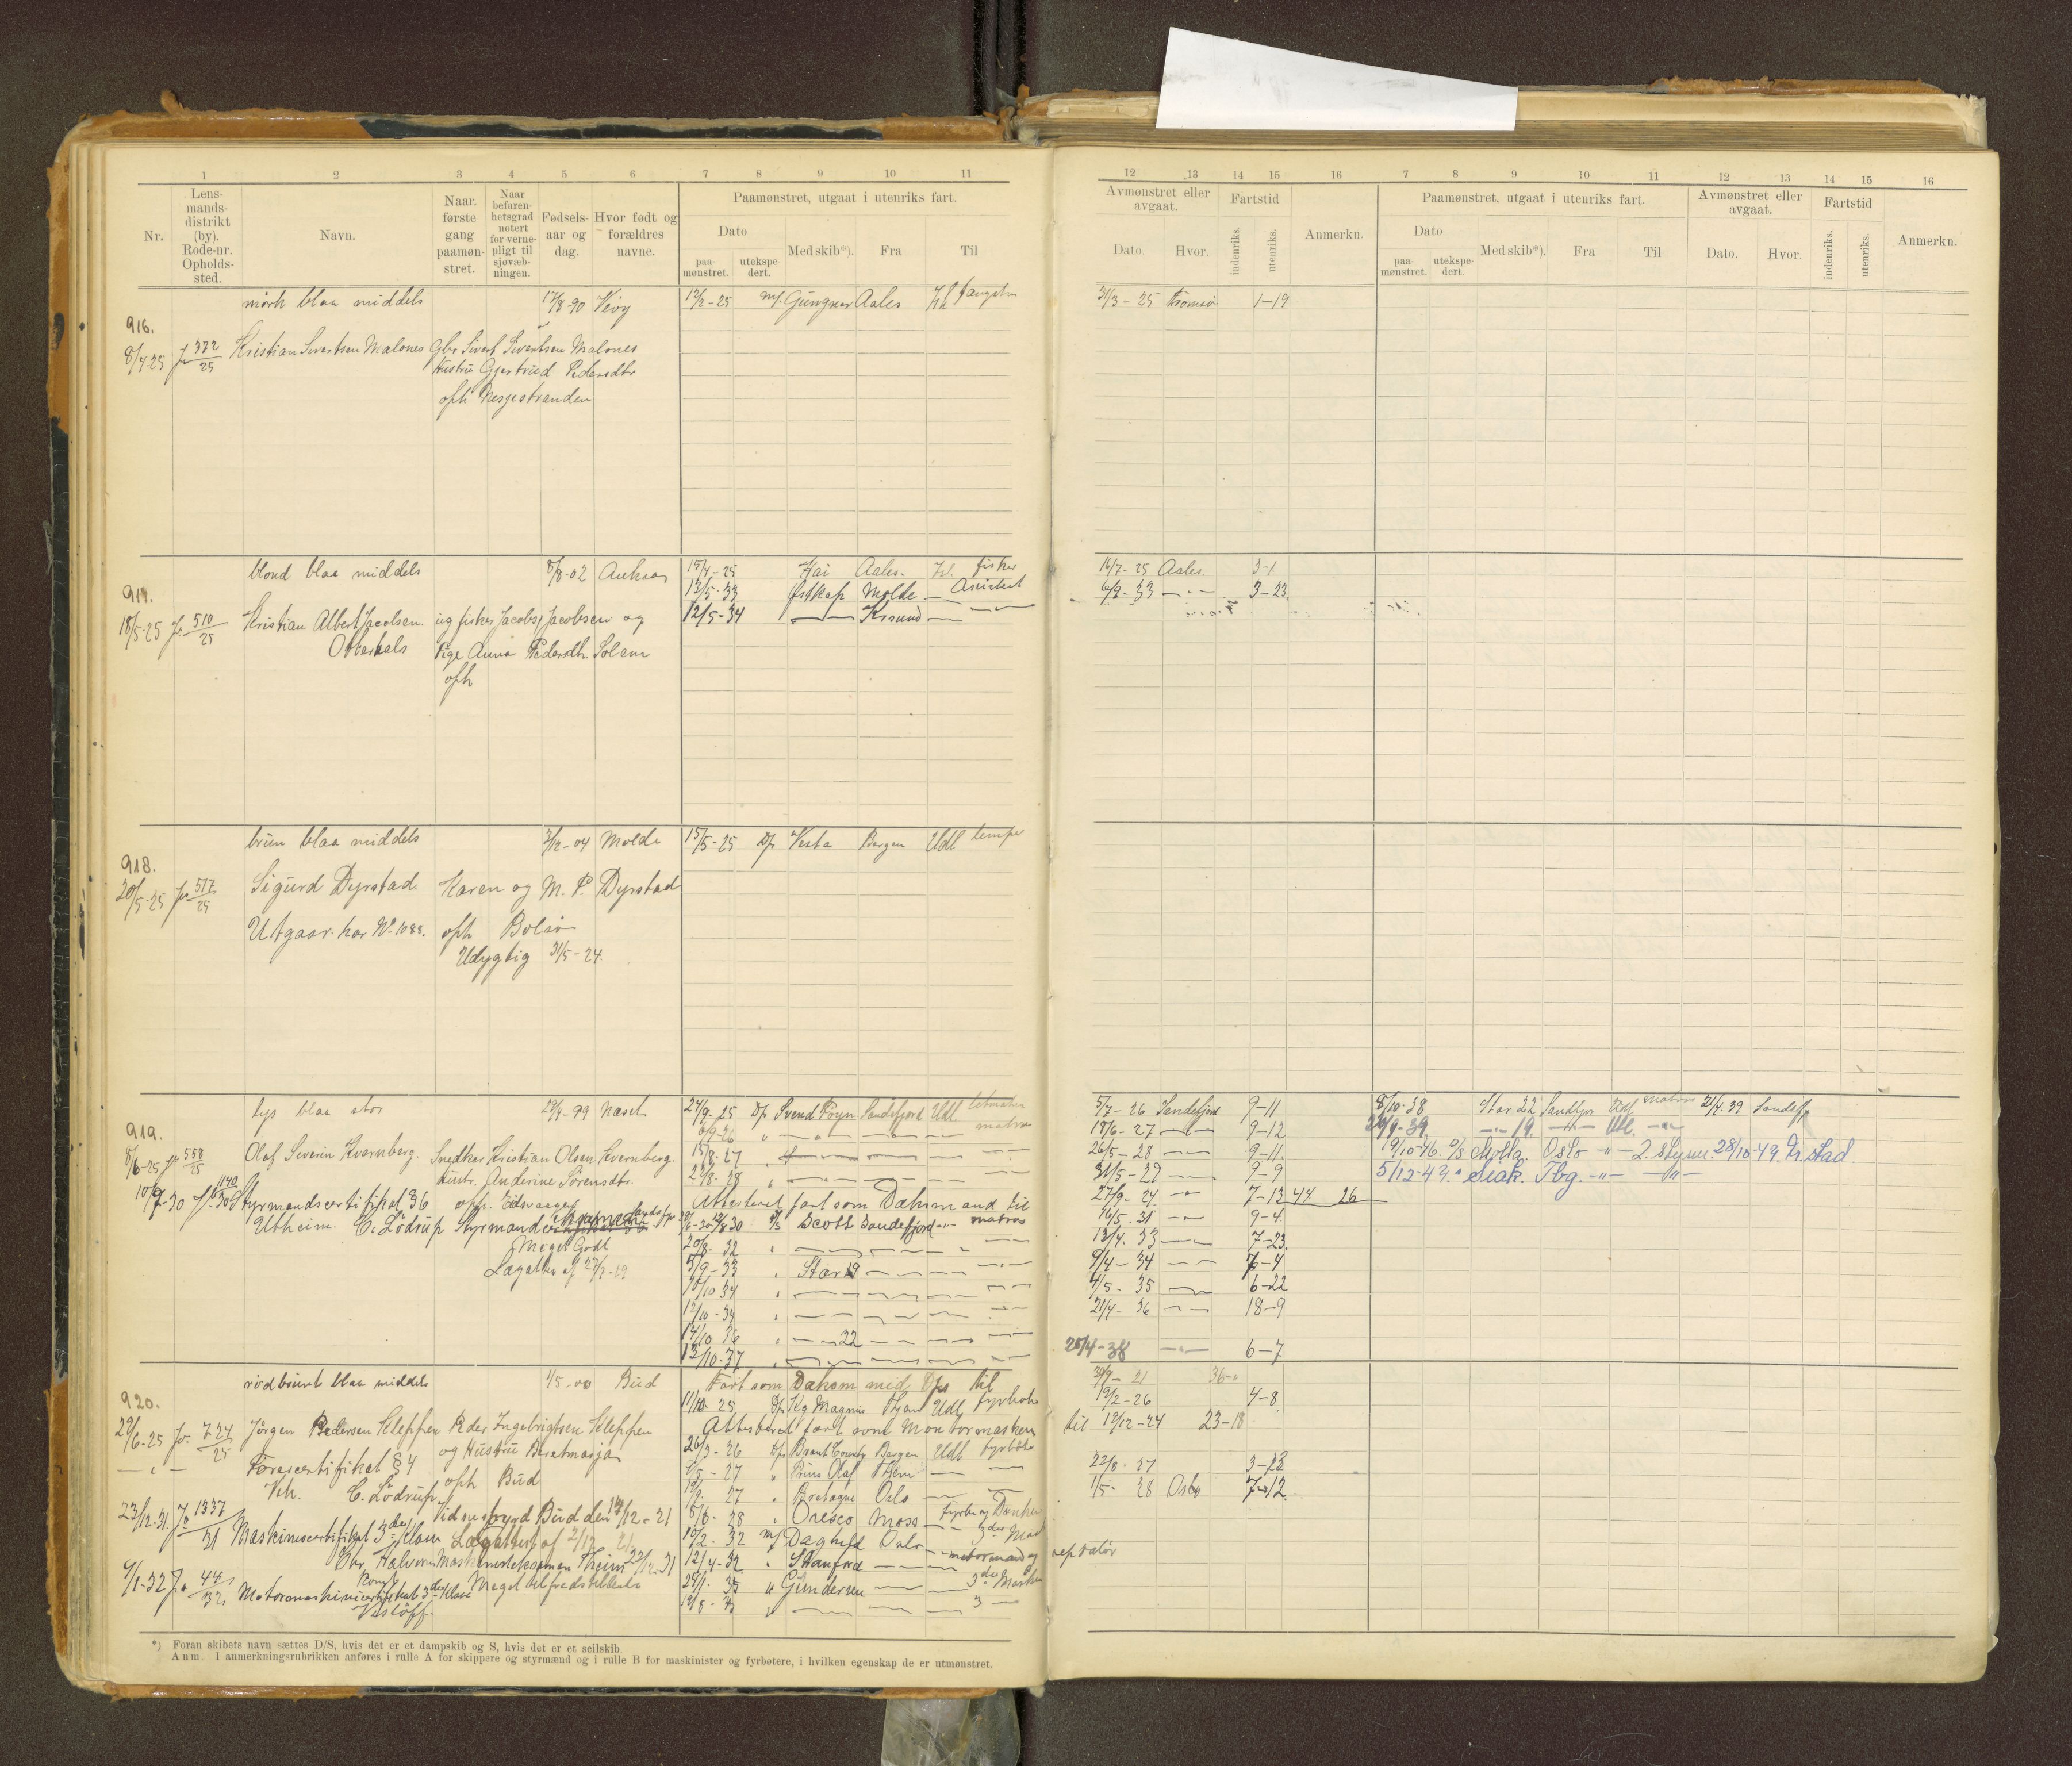 1 2 3 4 5 6 7 8 9 10 11
Nr. Lensmandsdistrikt (by). Rode-nr. Opholdssted. Navn. Naar første gang paamønstret. Naar befarenhetsgrad notert for vernepligt til sjøvæbningen. Fødselsaar og dag. Hvor født og forældres navne.
Paamønstret, utgaat i utenriks fart.
Dato
paamønstret. utekspedert. Med skib*). Fra Til
mørk blaa middels 17/8-90 Veøy 12/2-25 M/ Gungner Aales
916.
8/4-25 Jr 372/25 Kristian Sivertsen Malones Gbr Sivert Sivertsen Malones
Hustru Gjertrud Pedersdtr
oph Nesjestranden
blond blaa middels 8/8-02 Aukra 15/4-25 Kai Aales. fisker
12/5-33 Østkap Molde
917.
18/5-25 Jr. 510/25 Kristian Albert Jacobsen ug fisker Jacobs Jacobsen og 12/5-34 Krsund
Pige Anna Pedersdtr Solem
oph
brun blaa middels 3/12-04 Molde 15/5-25 D/s Vesta Bergen Udl
918.
20/5-25 Jr 517/25 Sigurd Dyrstad. Karen og M. P. Dyrstad
Utgaar. har No 1088. oph Bolsø
Udygtig 31/5-24.
lys blaa stor 29/9-99 Neset 24/9-25 D/s Svend Foyn Sandefjord Udl. letmatr
919.
8/6-25 Jr 558/25 Olaf Severin Kvernberg. Snedker Kristian Olsen Kvernberg. 15/8-27
hustr. Anderine Sørensdtr. 22/8-28
10/9-30 Styrmandscertifikat § 36 oph. Eidsvaag Attesteret fart som Dæksmand til
Utheim. C. Lødrup Styrmands 12/8 30 Scott Sandefjord matros
Meget Godt 20/8-32
Lægattest af 27/7-29 5/9-33 Star 19
10/10 34
12/10-34
14/10 36 22
13/10-37
rødbrunt blaa middels 1/5-00 Bud Fart som Dæksm med D/s til
920. 11/10-25 D/s Kg Magnus Udl fyrbøter
29/6-25 Jr. 724/25 Jørgen Pedersen Kleppen Peder Ingebrigtsen Kleppen Attesteret fart som Motormaskin
og Hustru Beratmarja 26/3-26 D/s Brant County Bergen Udl fyrbøter
Førercertifikat § 4 oph Bud 4/5-27 Prins Olaf
Vth. C. Lødrup 27 Bretagne Oslo
23/12-31 Jr 1337/31 Vidnesbyrd Bud den 14/12-21 8/6-28 Oresco Moss
Maskinistcertifikat 3die Klasse Lægattest af 2/12 21 10/2-32 M/ Daghild Oslo
Maskinisteksamen Theim 22/12-31 12/4-32 Stanford motormand og
4/1-32 Jr 44/32 Motormaskinistcertifikat 3die Klasse Meget tilfredsstillende 29/1-33 Gundersen 3die Maskin
19/8-33 3
*) Foran skibets navn sættes D/S, hvis det er et dampskib og S, hvis det er et seilskib.
Anm. I anmerkningsrubrikken anføres i rulle A for skippere og styrmænd og i rulle B for maskinister og fyrbøtere, i hvilken egenskap de er utmønstret.
12 13 14 15 16 7 8 9 10 11 12 13 14 15 16
Avmønstret eller avgaat. Fartstid Anmerkn. Paamønstret, utgaat i utenriks fart. Avmønstret eller avgaat. Fartstid Anmerkn.
Dato. Hvor. indenriks. utenriks. Dato paamønstret. utekspedert. Med skib*). Fra Til Dato. Hvor. indenriks. utenriks.
31/3-25 Tromsø 1-19
16/7-25 Aales. 3-1
6/9-33 3-23
5/7-26 Sandefjord 9-11 8/10-38 Star 22 Sandefjor Udl matros 21/4 39 Sandefj
17/6-27 9-12 39 19. Utl.
26/5-28 9-11 19/10-46 D/s Molla Oslo 2. Styrm. 28/10-49 Fr.stad
31/5-29 9-9 5/12-49 Siak. Tbg.
27/9-24 7-13 44 26
16/5. 31 9-4
13/4. 33 7-23
9/4-34 7-4
4/5-35 6-22
21/4-36 18-9
25/4-38 6-7
30/9-21 36
19/2-26 4-8
til 12/12-24 23-18
22/8-27 3-13
1/5-28 Oslo 7-12